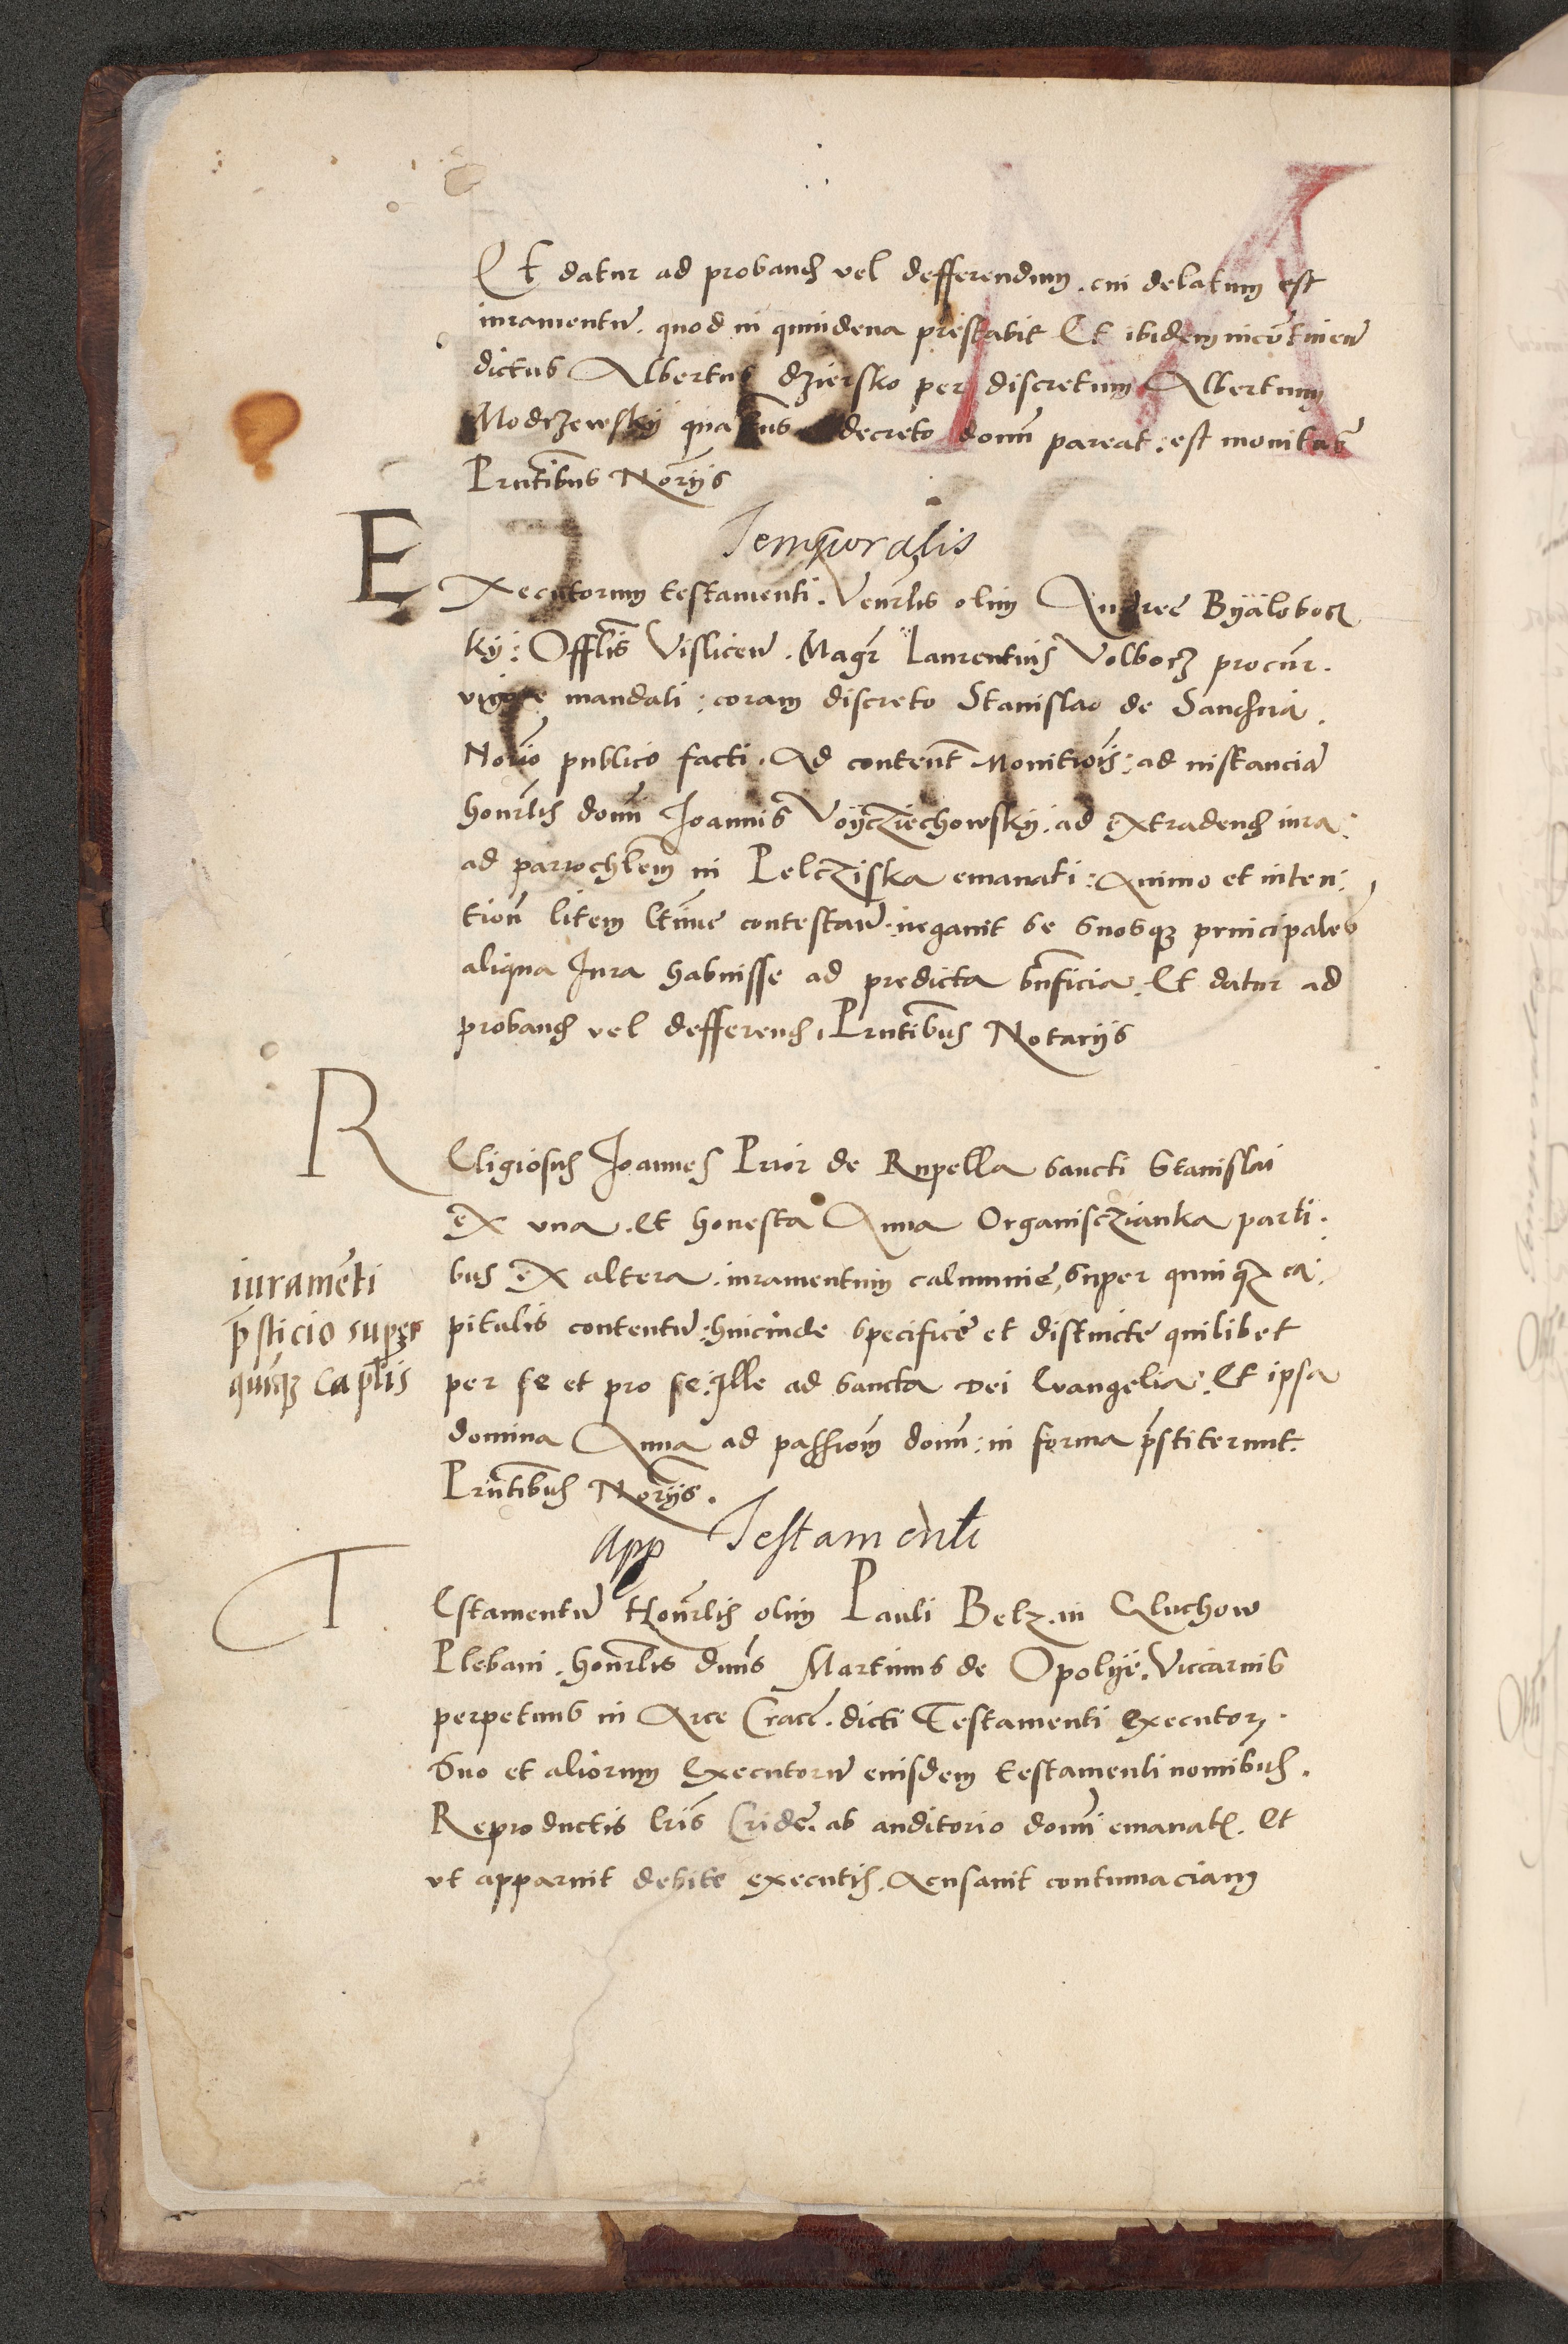 Et datur ad proband vel defferendum. cui delatum est
iuramentu. quod in quindena prestabit Et ibidem incontinen
dictus Albertus dziersko per discretum Albertum
Modrzewsky quatenus decreto domi pareat. est monitus
Prntibus Norijs
Temporalis
Executorum testamenti. Venrlis olim Andree Byalobocz
ky: Offlis Vislicen. Magr Laurentius Volborz procur.
vigore mandati: coram discreto Stanislao de
Norio publico facti. Ad content Monitiois: ad instancia
honrlis domi Joannis Voyczechowsky. ad extradend iura:
ad parrochlem in Pelcziska emanati: Animo et inten:
tion litem ltime contestan. negauit se suosqz principales
aliqua Jura habuisse ad predicta bnficia. Et datur ad
proband vel defferend. Prntibus Notarijs
Religiosus Joannes Prior de Rupella sancti Stanislai
ex vna. Et honesta Anna Organisczianka parti.
bus ex altera. iuramentum calumnie, super quinqz ca:
pitulis contentu: hincinde specifice et distincte quilibet
per se et pro se: Ille ad sancta Dei Evangelia. Et ipsa
domina Anna ad passiom domi: in forma pstiterunt.
Prntibus Norijs.
iuramēti
psticio super
quiqz caplis
app Testamenti
Testamentu Honrlis olim Pauli Belz. in Gluchow
Plebani. honrlis dnns Martinus de Opolye. Viccarius
perpetuus in Arce Crac. dicti Testamenti Executor.
Suo et aliorum Executoru eiusdem testamenti nomibus.
Reproductis lris Cride. ab auditorio domi emanat. Et
vt apparuit debite executis. Acusauit contumaciam